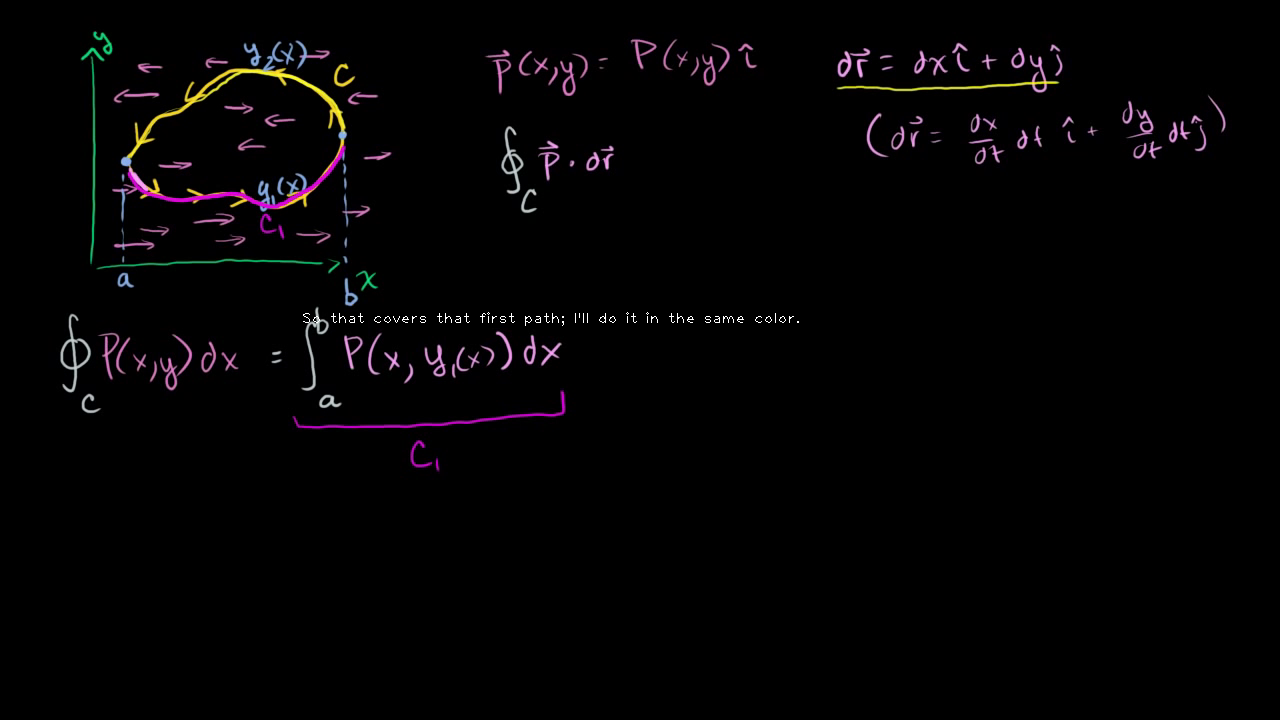 y
y₂(x)
C
y₁(x)
C₁
a
b
x
p⃗(x,y) = P(x,y) î
∮_C p⃗ · dr⃗
dr⃗ = dx î + dy ĵ
(dr⃗ = dx/dt dt î + dy/dt dt ĵ)
So that covers that first path; I'll do it in the same color.
∮_C P(x,y) dx = ∫_a^b P(x, y₁(x)) dx
C₁